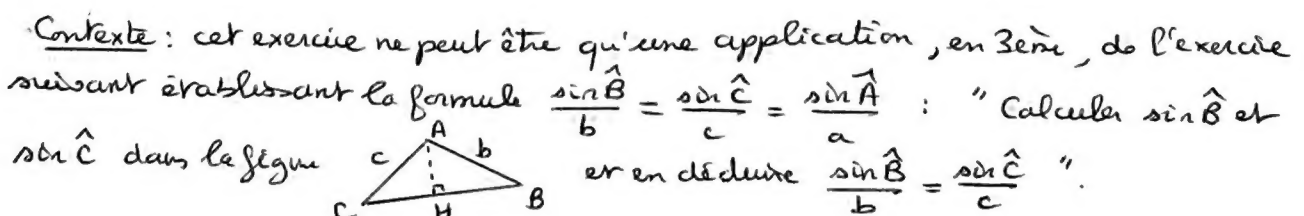 Contexte : cet exercice ne peut être qu'une application, en 3ème, de l'exercice
suivant établissant la formule sin B̂/b = sin Ĉ/c = sin Â/a : " Calculer sin B̂ et
sin Ĉ dans la figure A c b C H B et en déduire sin B̂/b = sin Ĉ/c ".